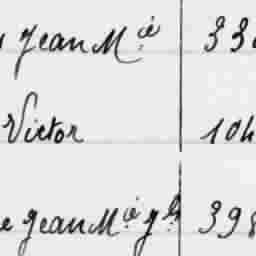 Jean Mie 33
Victor 104
e Jean Mie gds 398